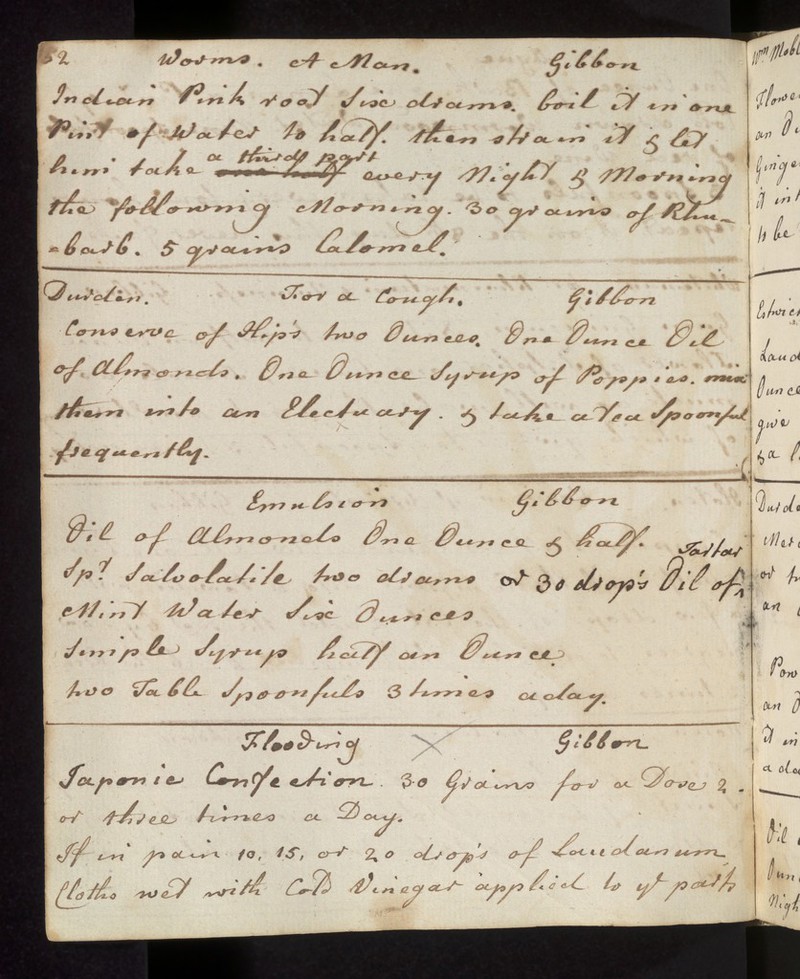 52 Worms. A Man. Gibbon
Indian Pink root Six drams. boil it in one
Pint of Water to half. then strain it & let
him take a third part every Night & Morning
the following Morning. 30 grains of Rhu=
=barb. 5 grains Calomel.
Durden. For a Cough. Gibbon
Conserve of Hip's two Ounces. One Ounce Oil
of Almonds. One Ounce Syrup of Poppies. mix
them into an Electuary. & take a Tea Spoonful
frequently.
Emulsion Gibbon
Oil of Almonds One Ounce & half.
Spt. Salvolatile two drams or 30 drop's Oil of Tartar
Mint Water Six Ounces
Simple Syrup half an Ounce
two Table Spoonfuls 3 times a day.
Flooding Gibbon
Japonic Confection. 30 Grains for a Dose 2.
or three times a Day.
If in pain 10, 15, or 20 drop's of Laudanum
Cloths wet with Cold Vinegar applied to ye parts
Wm
an
it in
to be
give
Durd
or
an
an
it in
Oil